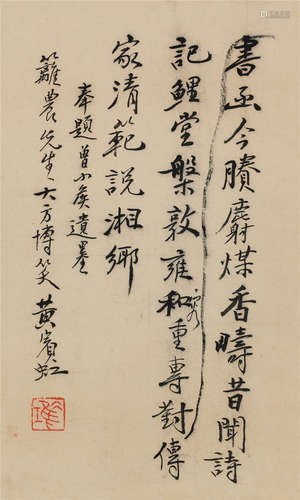 書函今賸麝煤香疇昔聞詩
記鯉堂槃敦雍和重專對傳
家清範說湘鄉
奉題曾小侯遺墨
籬農先生大方博笑 黃賓虹